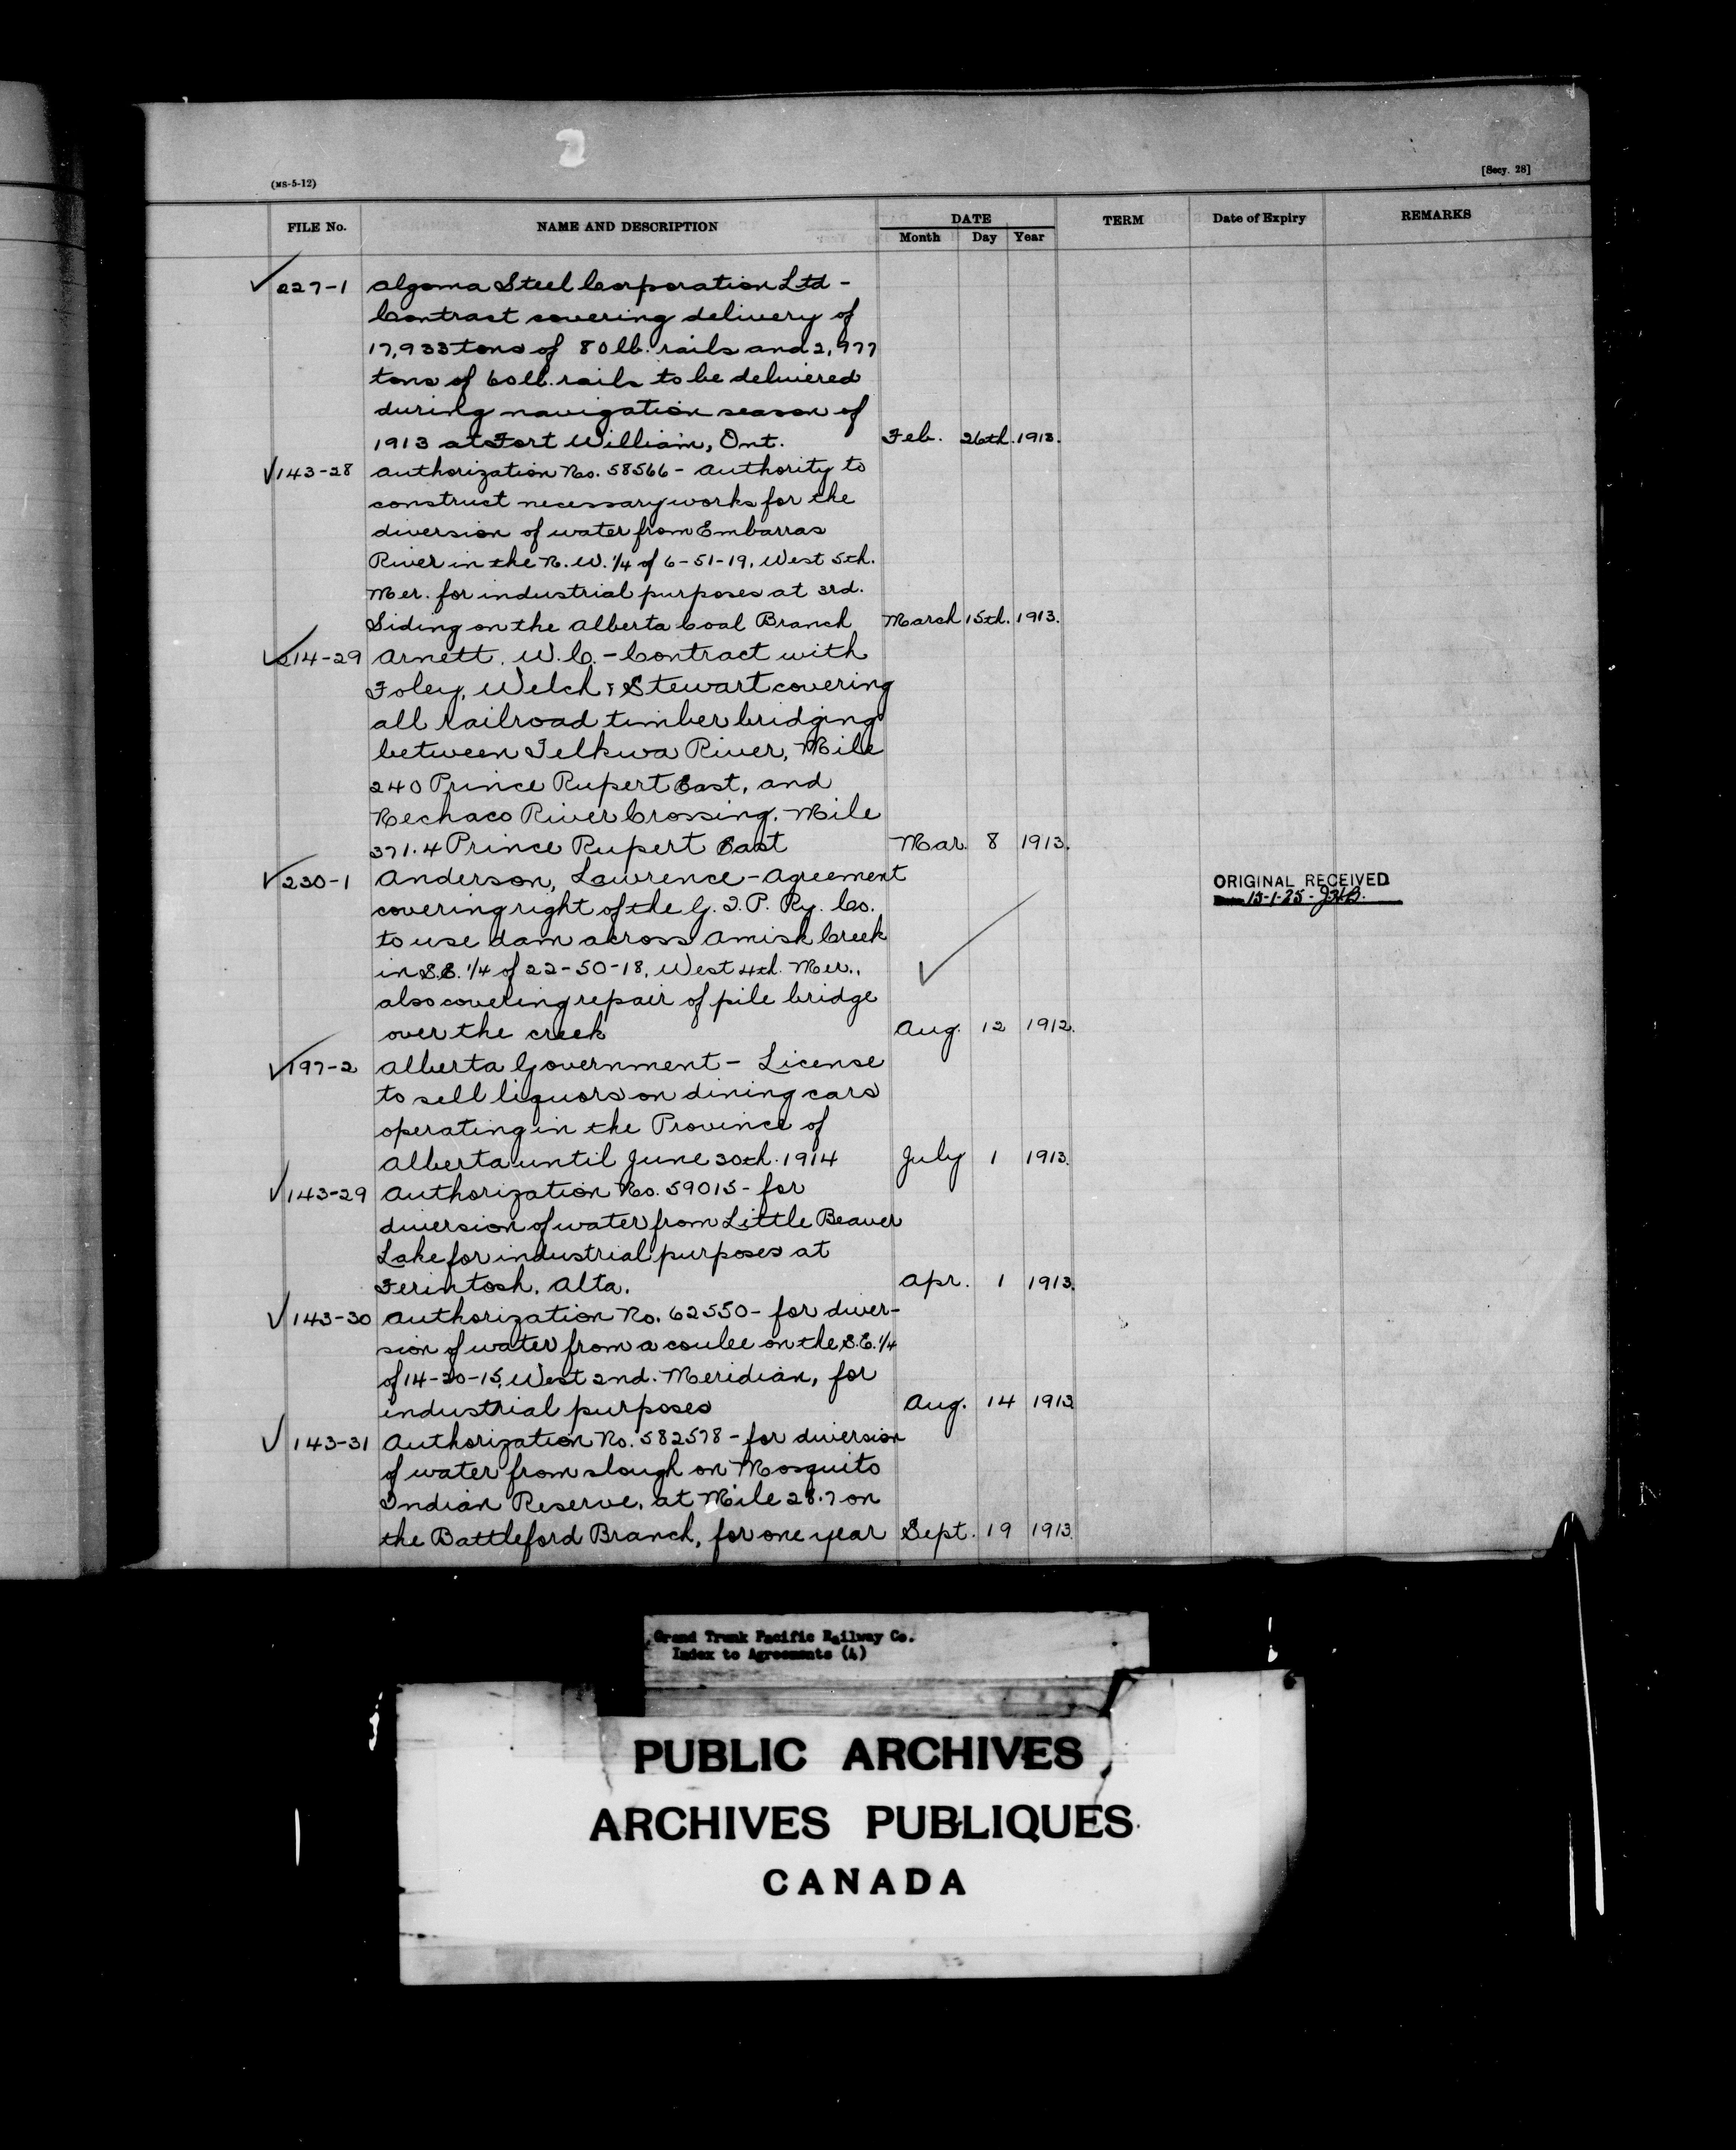 (MS-5-12)
[Secy. 28]
FILE No. NAME AND DESCRIPTION DATE Month Day Year TERM Date of Expiry REMARKS
227-1 Algoma Steel Corporation Ltd -
Contract covering delivery of
17,933 tons of 80 lb. rails and 2,977
tons of 60 lb. rails to be delivered
during navigation season of
1913 at Fort William, Ont. Feb. 26th. 1913.
143-28 Authorization No. 58566 - Authority to
construct necessary works for the
diversion of water from Embarras
River in the N.W. 1/4 of 6-51-19, West 5th.
Mer. for industrial purposes at 3rd.
Siding on the Alberta Coal Branch March 15th. 1913.
214-29 Arnett, W.C. - Contract with
Foley, Welch & Stewart covering
all railroad timber bridging
between Telkwa River, Mile
240 Prince Rupert East, and
Nechaco River Crossing, Mile
371.4 Prince Rupert East Mar. 8 1913.
230-1 Anderson, Lawrence - Agreement
covering right of the G.T.P. Ry. Co.
to use dam across Amisk Creek
in S.E. 1/4 of 22-50-18, West 4th. Mer.,
also covering repair of pile bridge
over the creek Aug. 12 1912.
ORIGINAL RECEIVED
13-1-25
197-2 Alberta Government - License
to sell liquors on dining cars
operating in the Province of
Alberta until June 30th. 1914 July 1 1913.
143-29 Authorization No. 59015 - for
diversion of water from Little Beaver
Lake for industrial purposes at
Ferintosh, Alta. Apr. 1 1913.
143-30 Authorization No. 62550 - for diver-
sion of water from a coulee on the S.E. 1/4
of 14-20-15, West 2nd. Meridian, for
industrial purposes Aug. 14 1913
143-31 Authorization No. 582578 - for diversion
of water from slough on Mosquito
Indian Reserve, at Mile 28.7 on
the Battleford Branch, for one year Sept. 19 1913.
Grand Trunk Pacific Railway Co.
Index to Agreements (4)
PUBLIC ARCHIVES
ARCHIVES PUBLIQUES
CANADA